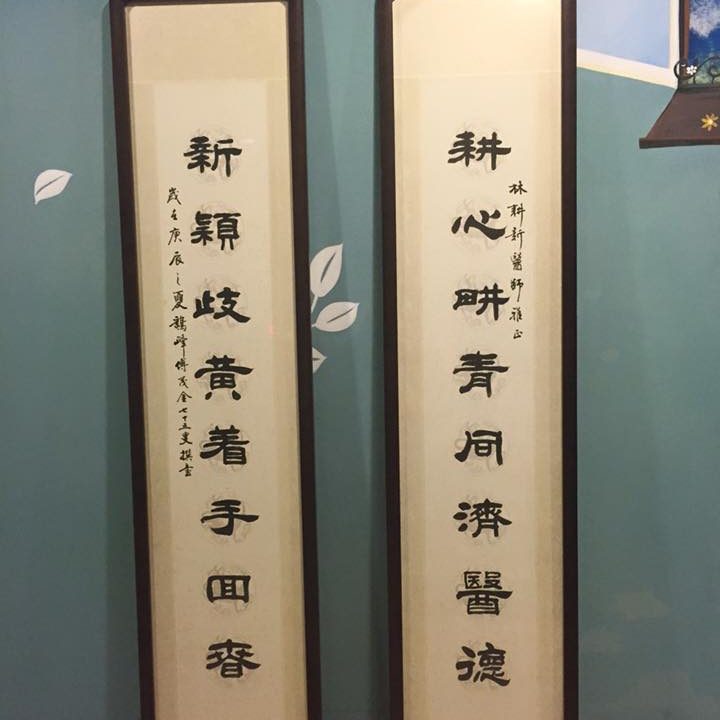 耕心畊青同濟醫德
林耕新醫師雅正
新穎歧黃着手回春
歲在庚辰之夏峰傅茂金七十五叟撰書